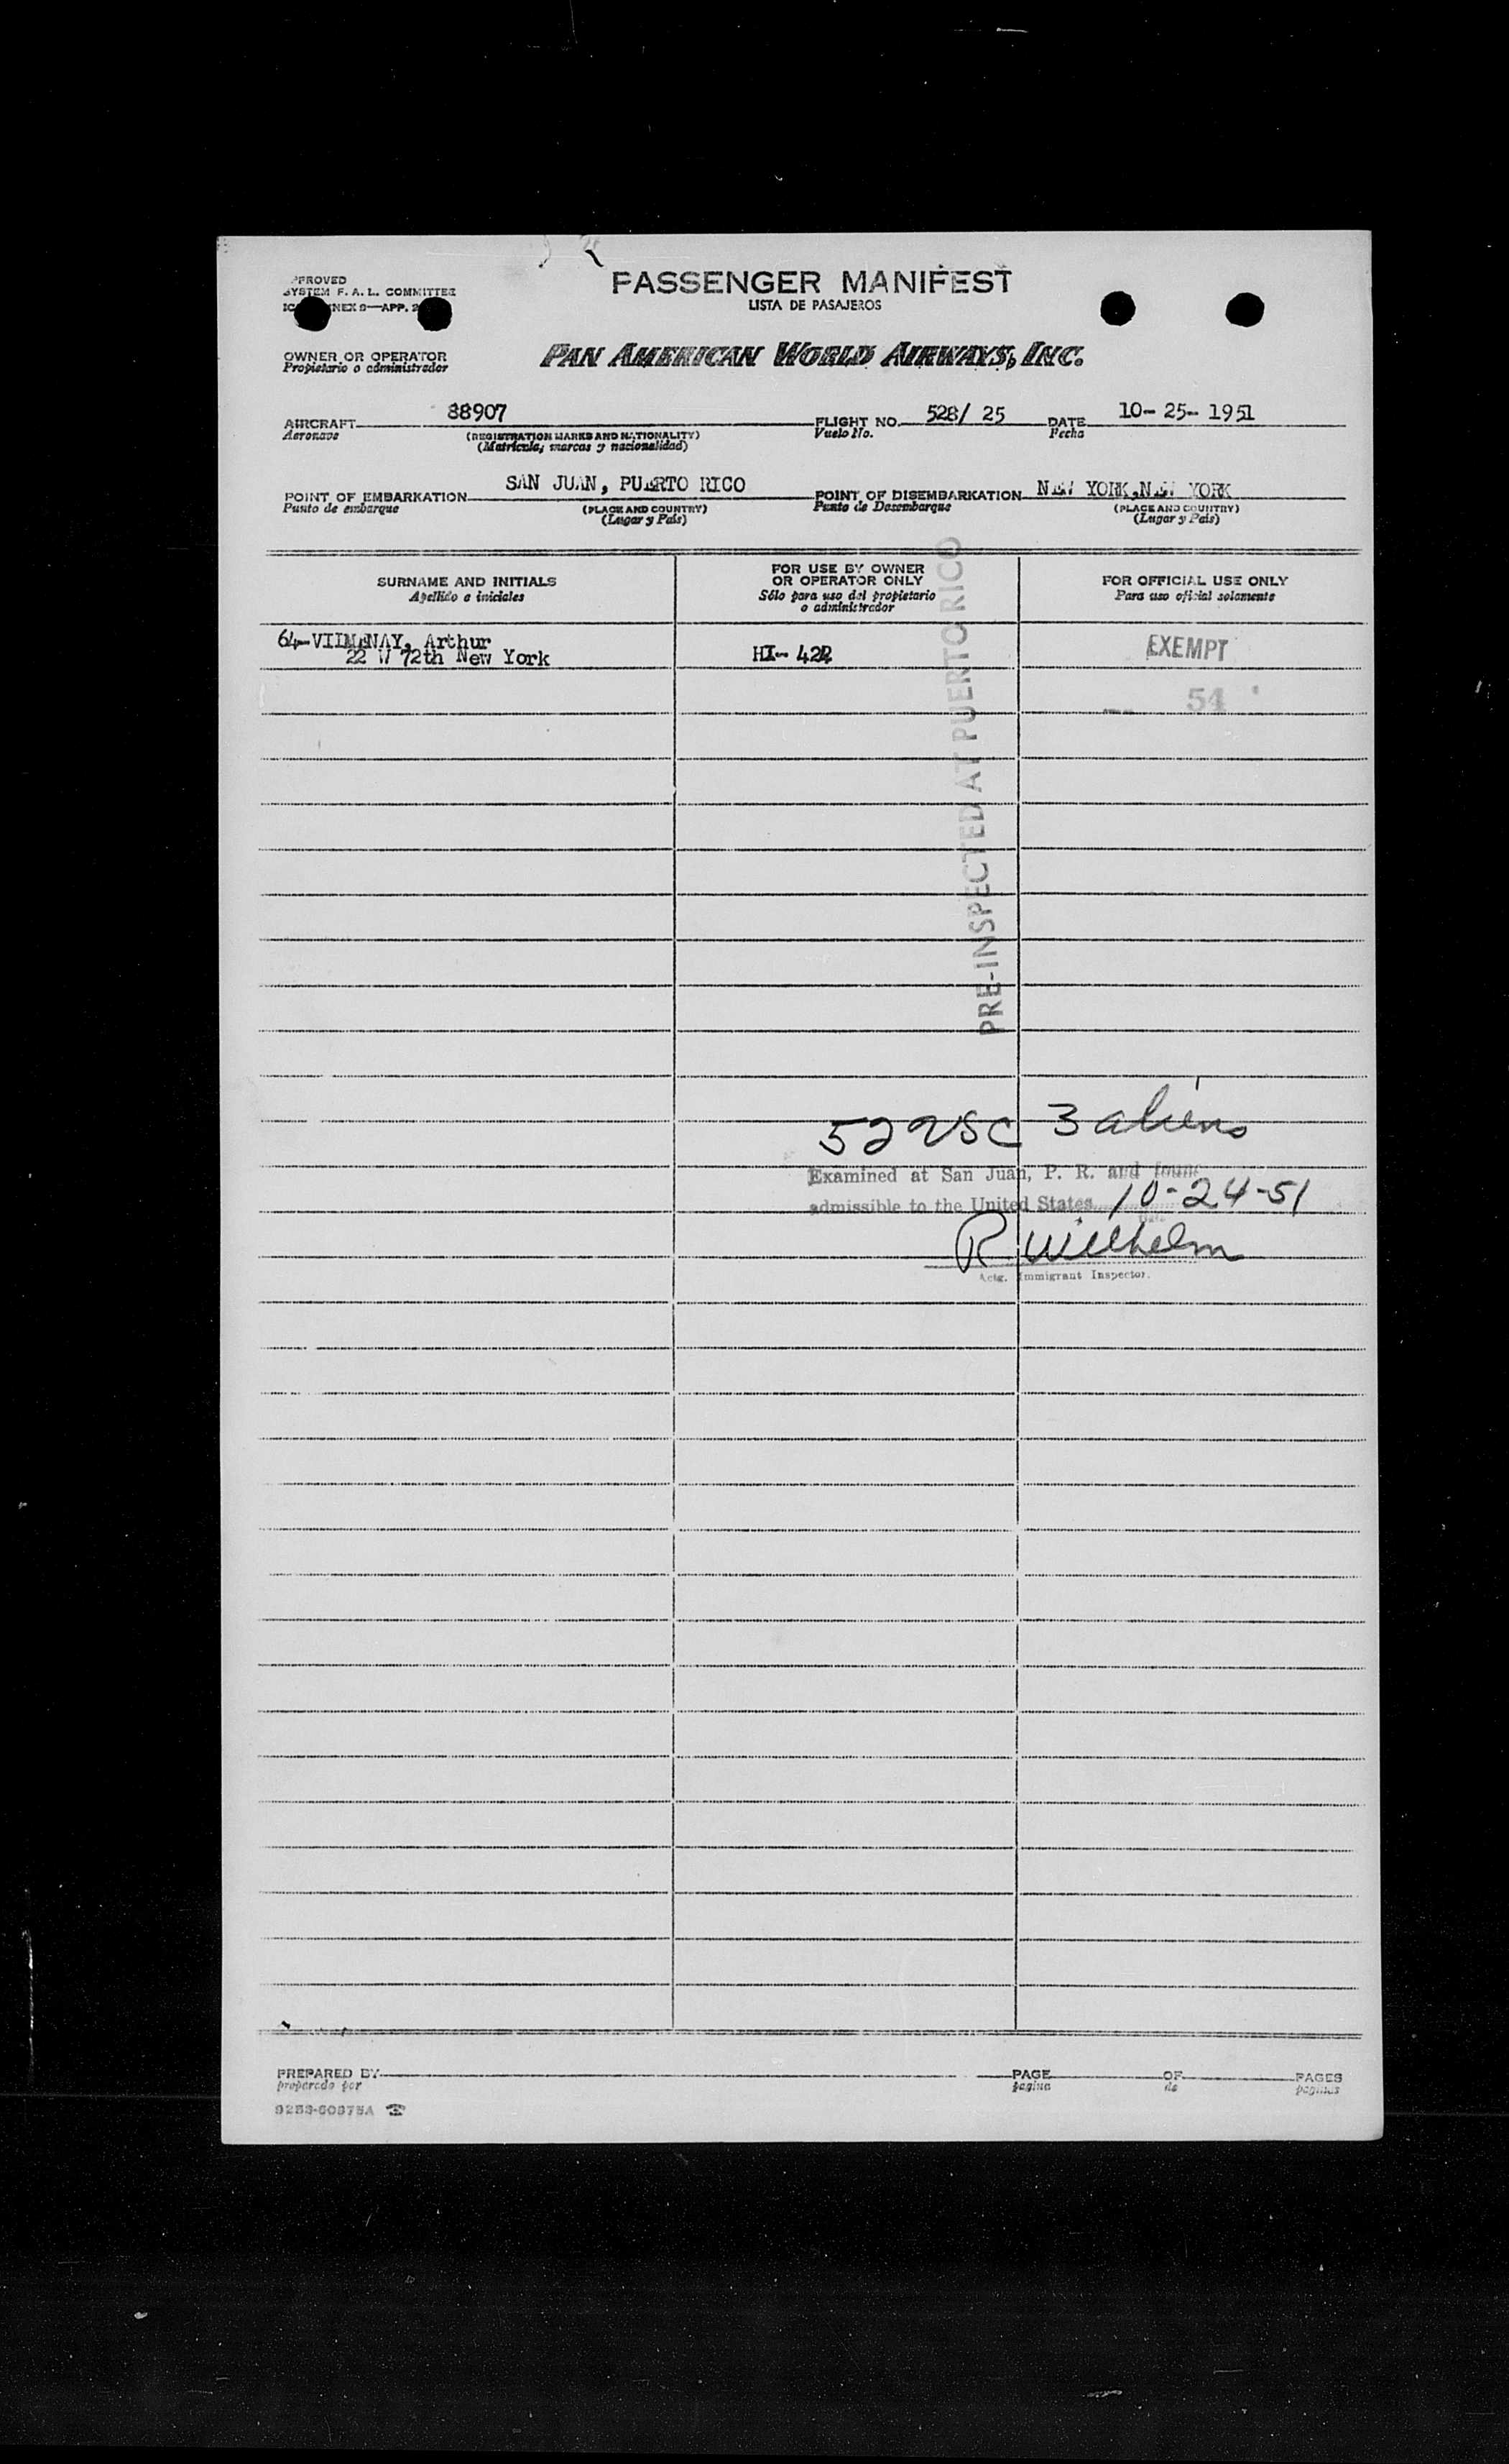 PASSENGER MANIFEST
LISTA DE PASAJEROS
SYSTEM F. A. L. COMMITTEE
OWNER OR OPERATOR
Propietario o administrador
PAN AMERICAN WORLD AIRWAYS, INC.
AIRCRAFT 88907 FLIGHT NO. 528/ 25 DATE 10- 25- 1951
Aeronave (REGISTRATION MARKS AND NATIONALITY) Vuelo No. Fecha
(Matrícula, marcas y nacionalidad)
POINT OF EMBARKATION SAN JUAN, PUERTO RICO POINT OF DISEMBARKATION NEW YORK,NEW YORK
Punto de embarque (PLACE AND COUNTRY) Punto de Desembarque (PLACE AND COUNTRY)
(Lugar y País) (Lugar y País)
SURNAME AND INITIALS
Apellido e iniciales
FOR USE BY OWNER
OR OPERATOR ONLY
Sólo para uso del propietario
o administrador
FOR OFFICIAL USE ONLY
Para uso oficial solamente
64-VIIMENAY, Arthur
22 W 72th New York
HI- 422
EXEMPT
54
PRE-INSPECTED AT PUERTO RICO
52 USC 3 aliens
Examined at San Juan, P. R. and found
admissible to the United States 10-24-51
R Wilhelm
Actg. Immigrant Inspector.
PREPARED BY PAGE OF PAGES
preparado por página de páginas